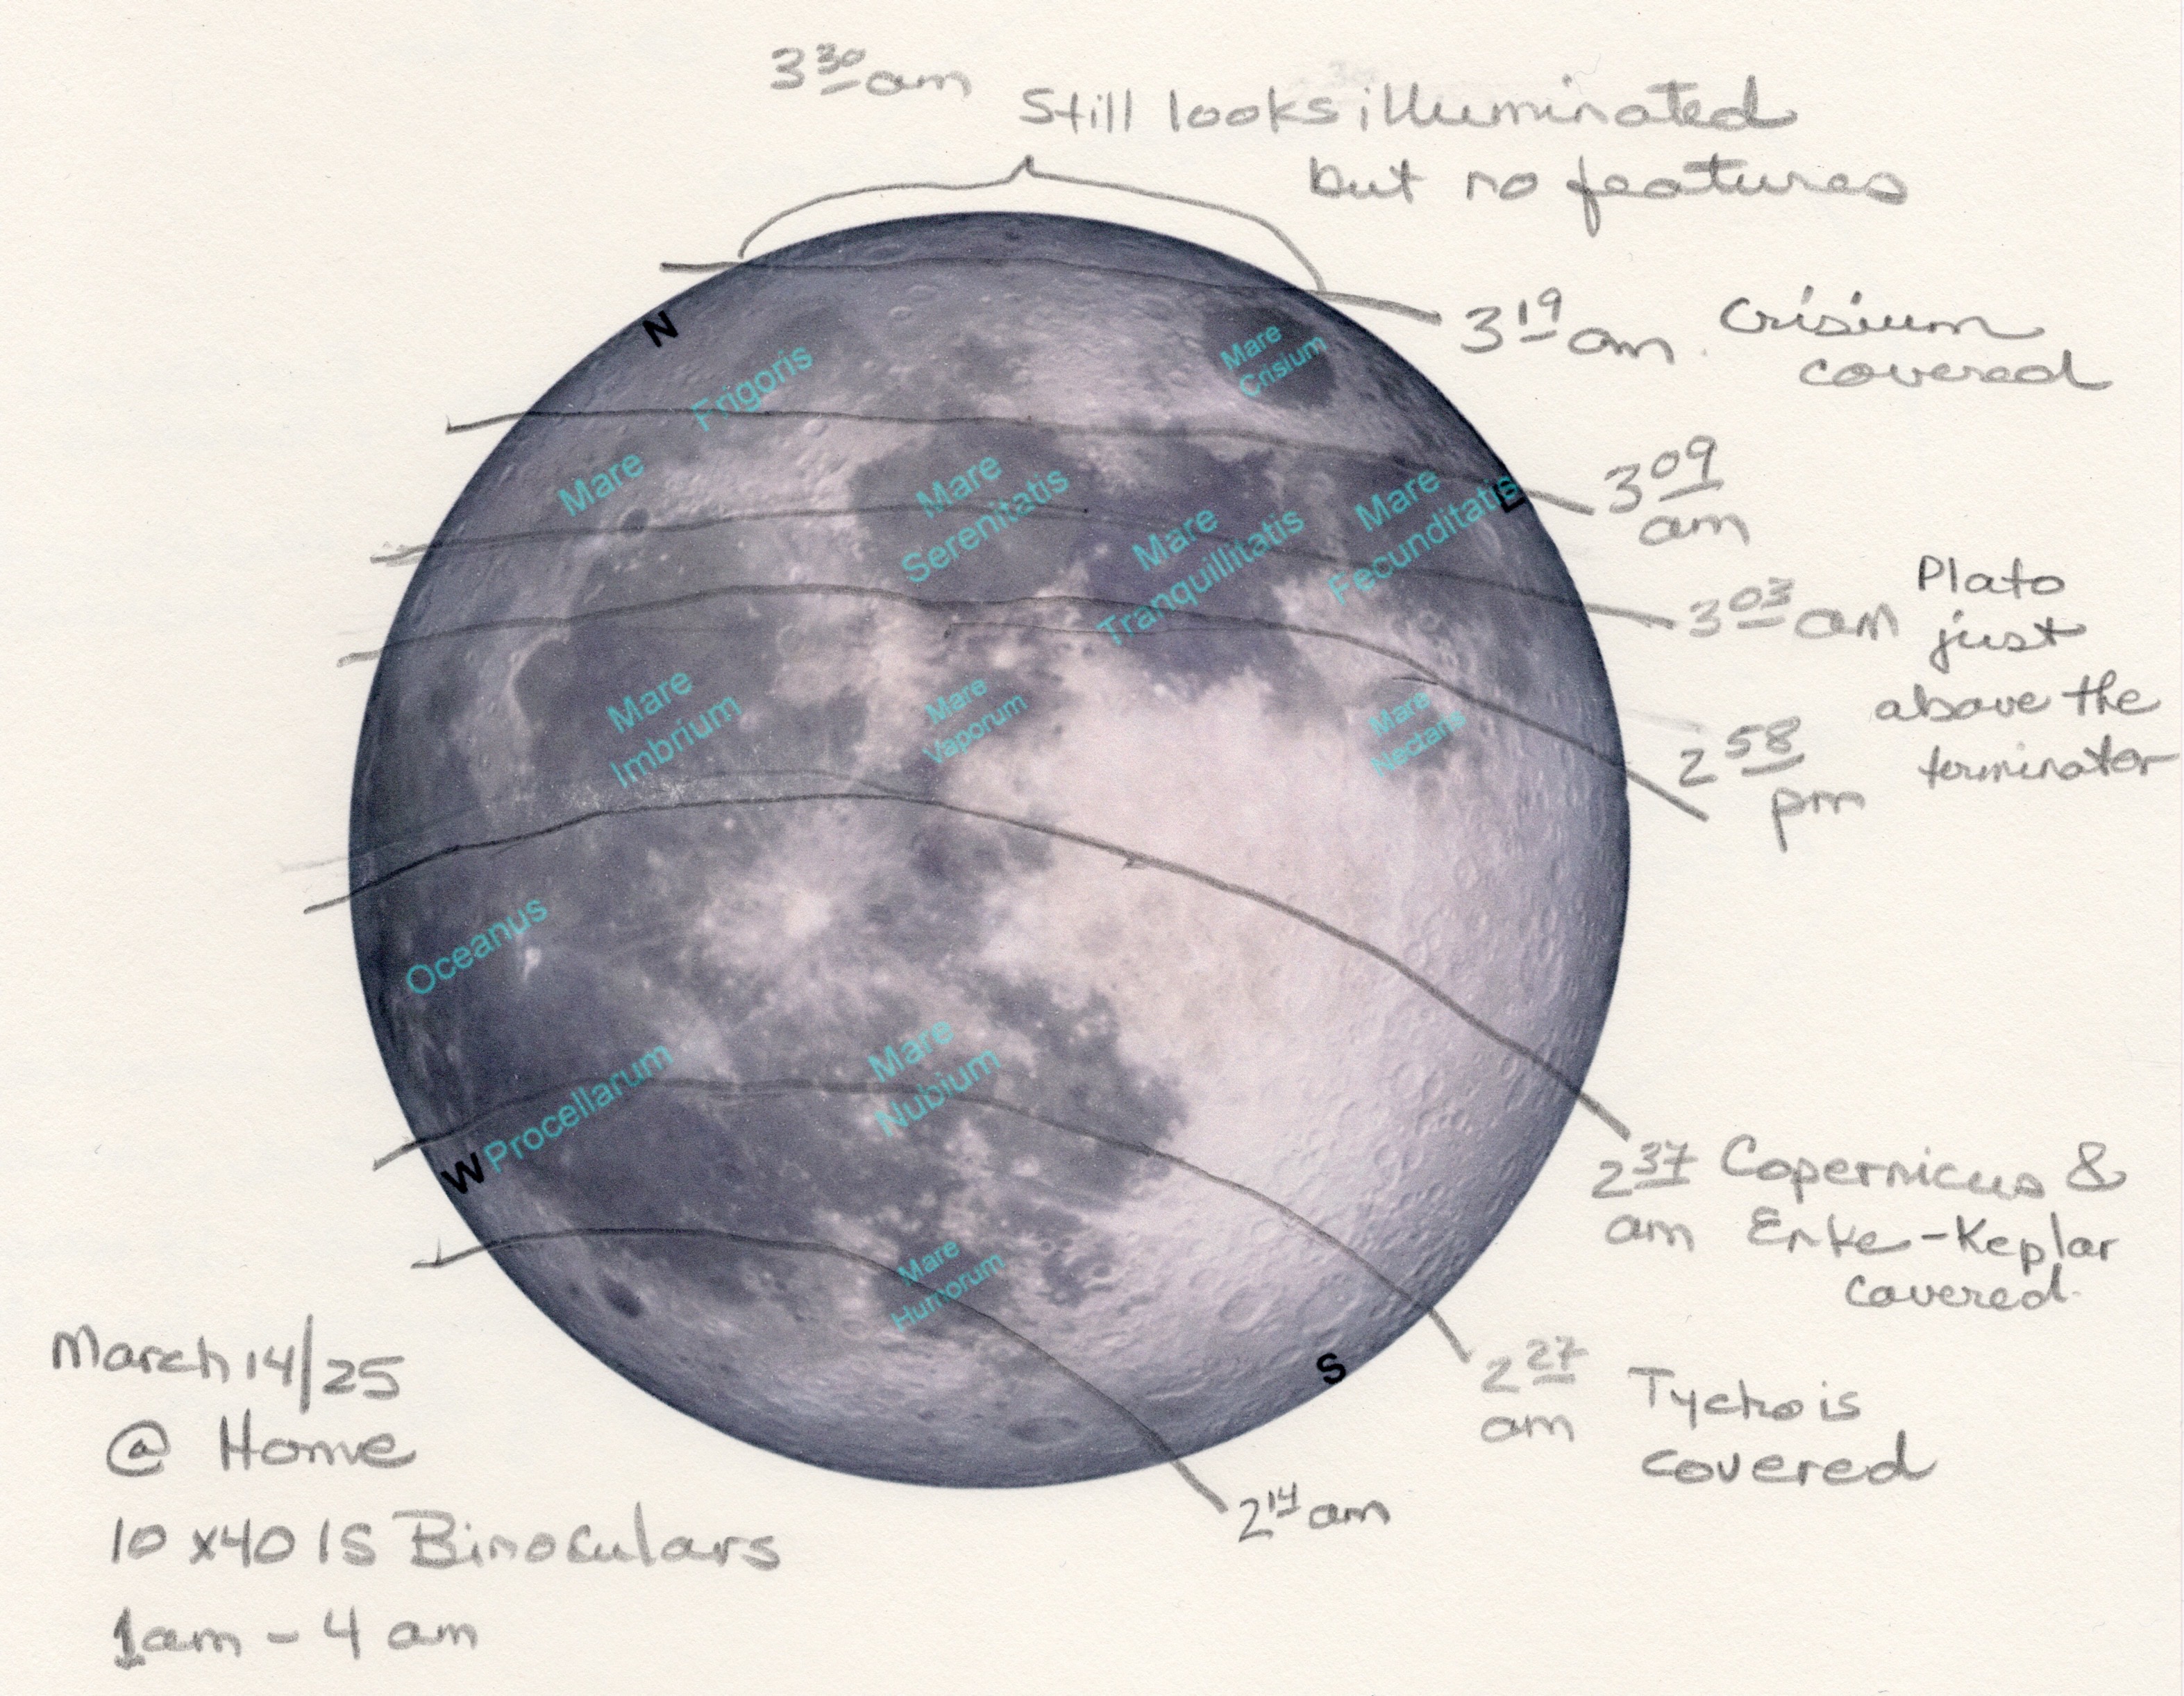 3 30 am
Still looks illuminated
but no features
N
3 19 am Crisium
covered
Mare
Crisium
Mare Frigoris
3 09
am
E
Mare
Serenitatis
Mare
Tranquillitatis
Mare
Fecunditatis
3 03 am Plato
just
above the
terminator
2 58
pm
Mare
Imbrium
Mare
Vaporum
Mare
Nectaris
Oceanus
Procellarum
Mare
Nubium
W
2 37 Copernicus &
am Enke-Keplar
covered.
Mare
Humorum
S
2 27 Tycho is
am covered
2 14 am
March 14/25
@ Home
10 x40 IS Binoculars
1am - 4 am